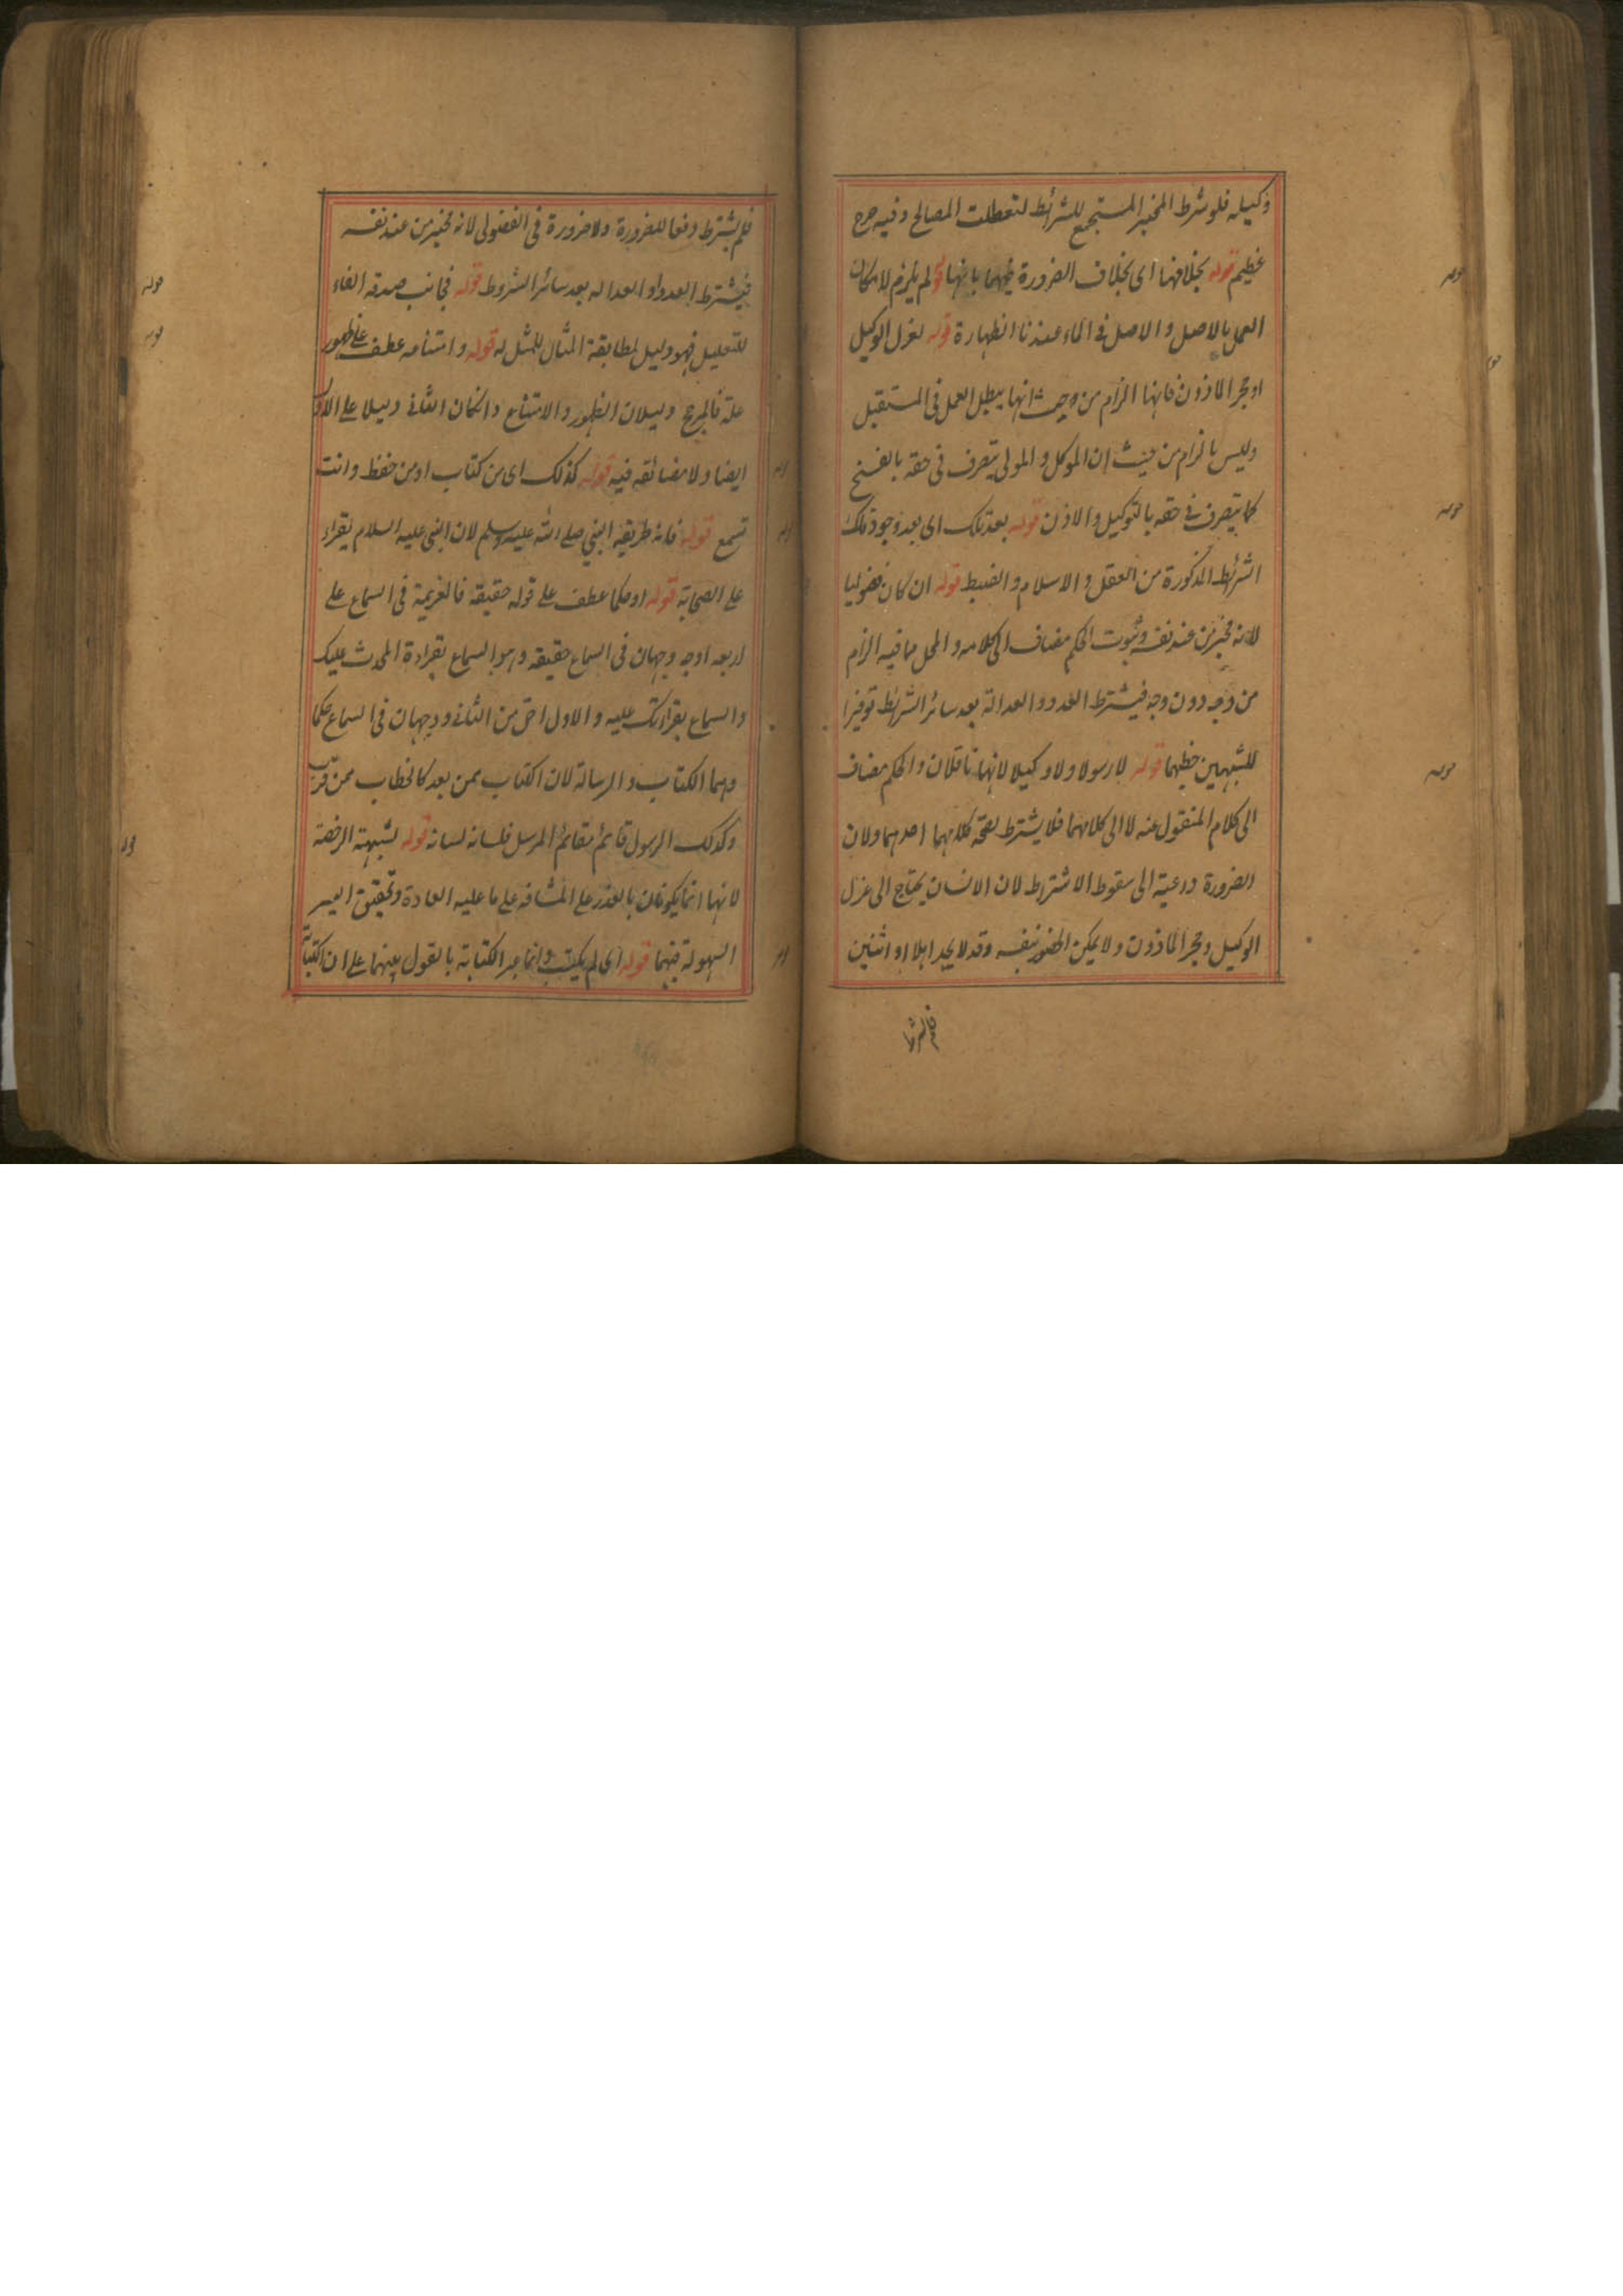 وكيله فلو شرط المخبر المستجمع للشرائط لتعطلت المصالح وفيه حرج
عظيم قوله بخلافها اى بخلاف الضرورة فيهما بانها قوله لم يلزم لامكان
العمل بالاصل والاصل فى الماء عندنا الطهارة قوله لعزل الوكيل
او حجر الماذون فانها الزام من حيث انها يبطل العمل فى المستقبل
وليس بالزام من حيث ان الموكل والمولى يتصرف فى حقه بالفسخ
كما يتصرف فى حقه بالتوكيل والاذن قوله بعد تلك اى بعد وجود تلك
الشرائط المذكورة من العقل والاسلام والضبط قوله ان كان فضوليا
لانه مخبر من عند نفسه وثبوت الحكم مضاف الى كلامه والمحل مما فيه الزام
من وجه دون وجه فيشترط العدد و العدالة بعد سائر الشرائط توفيرا
للشبهين حظهما قوله لا رسولا ولا وكيلا لانهما ناقلان والحكم مضاف
الى كلام المنقول عنه لا الى كلامهما فلا يشترط لصحة كلامهما احدهما ولان
الضرورة داعية الى سقوط الاشتراط لان الانسان يحتاج الى عزل
الوكيل وحجر الماذون ولا يمكن الحضور بنفسه وقد لا يجد اهلا او اثنين
فلم يشترط
فلم يشترط دفعا للضرورة ولا ضرورة فى الفضولى لانه مخبر من عند نفسه
فيشترط العدد او العداله بعد سائر الشروط قوله فجانب صدقه الفاء
للتعليل فهو دليل لمطابقة المثال للمثل له قوله و امتنامه عطف على ظهور
علة فالمرجح دليلان الظهور والامتناع وانكان الثانى دليلا على الاول
ايضا ولا مضائقه فيه قوله كذلك اى من كتاب او من حفظ وانت
تسمع قوله فانه طريقة النبي صلى الله عليه وسلم لان النبى عليه السلام يقراء
على الصحابة قوله او حكما عطف على قوله حقيقة فالعزيمة فى السماع على
اربعه اوجه وجهان فى السماع حقيقه وهو السماع بقراءة المحدث عليك
والسماع بقراءتك عليه والاول احق من الثانى ووجهان فى السماع حكما
وهما الكتاب والرسالة لان الكتاب ممن بعد كالخطاب ممن قرب
وكذلك الرسول قائم مقام المرسل فلسانه لسانه قوله لشبهة الرخصة
لانها انما يكونان بالعذر على المشافه على ما عليه العادة وتحقيق اليسر
السهولة فيهما قوله اى لم يكتب وانما عبر الكتابة بالقول بينهما على ان الكتابة